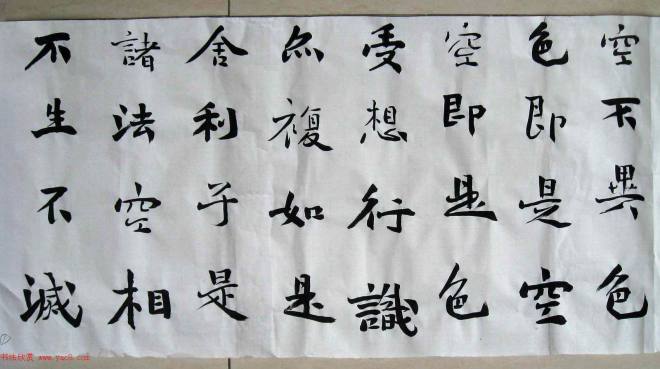 空不異色
色即是空
空即是色
受想行識
亦複如是
舍利子是
諸法空相
不生不滅
书法欣赏 www.yac8.com